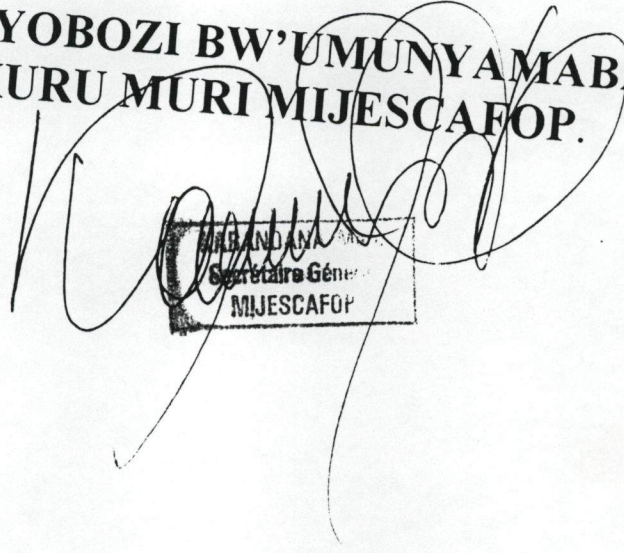 YOBOZI BW'UMUNYAMAB
KURU MURI MIJESCAFOP.
KABANDANA
Secrétaire Géné
MIJESCAFOP